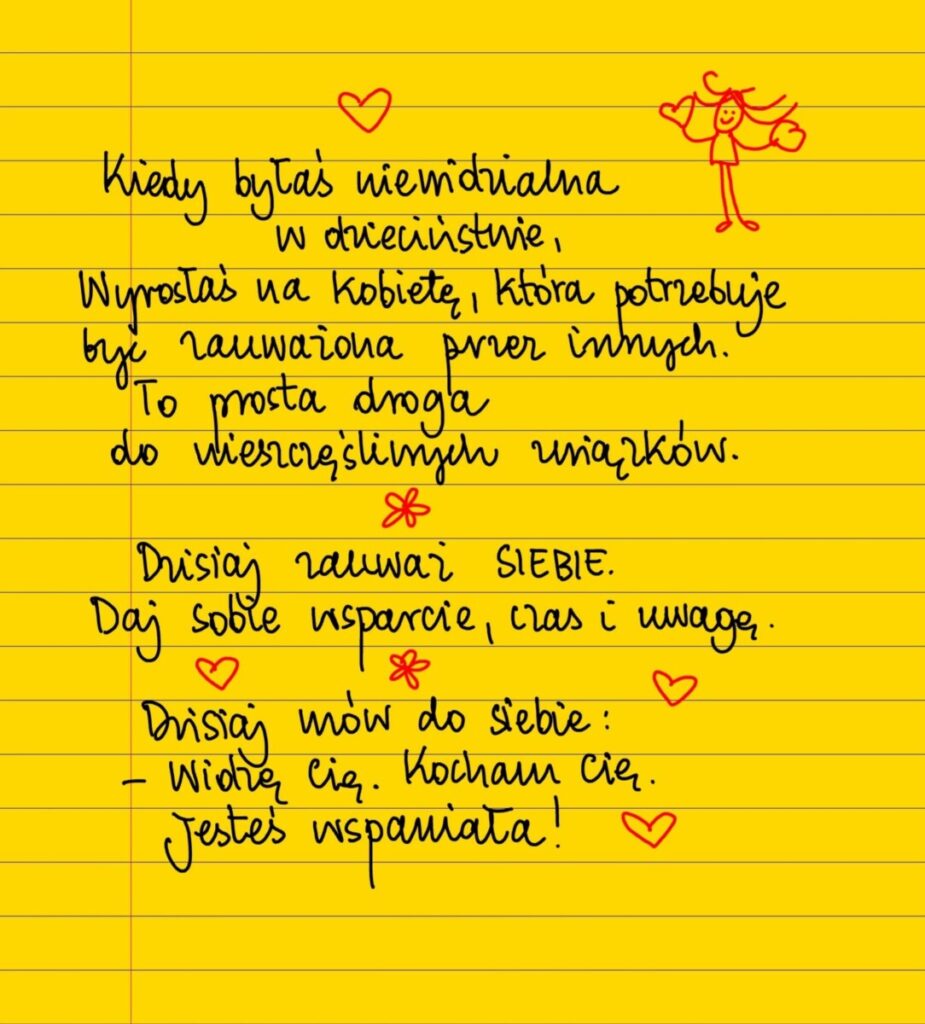 Kiedy byłaś niewidzialna
w dzieciństwie,
Wyrosłaś na kobietę, która potrzebuje
być zauważona przez innych.
To prosta droga
do nieszczęśliwych związków.
Dzisiaj zauważ SIEBIE.
Daj sobie wsparcie, czas i uwagę.
Dzisiaj mów do siebie:
- Widzę cię. Kocham cię.
Jesteś wspaniała!